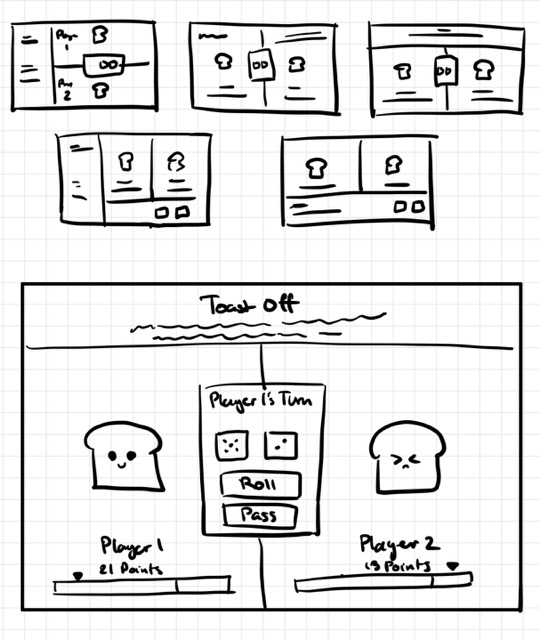 Player
1
Toast Off
Player 1's Turn
Roll
Pass
Player 1
21 Points
Player 2
19 Points